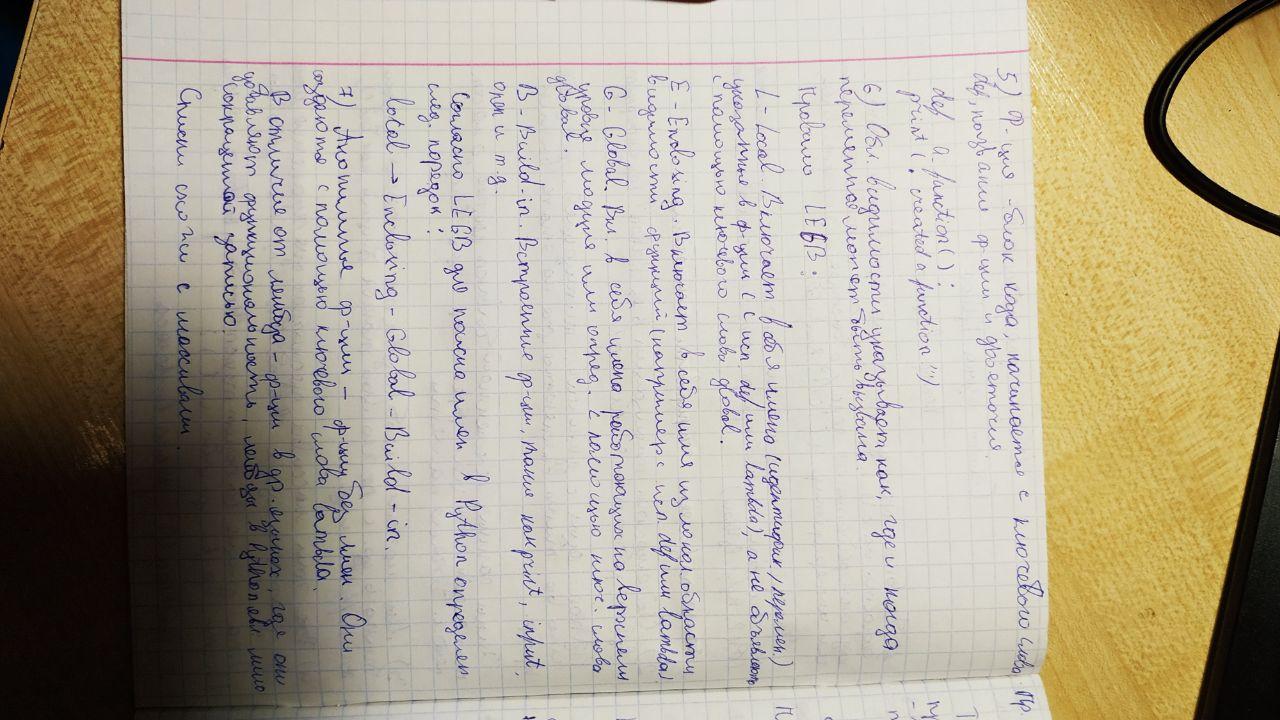 5) Ф-ция - блок кода, начинается с ключевого слова
def, названия ф-ции и двоеточия.
def a function():
print("created a function")
6) Обл. видимости указывает как, где и когда
переменная может быть вызвана.
Правило LEGB:
L - Local. Включает в себя имена (идентифик/перемен)
указанные в ф-ции (с исп. def или lambda), а не объявлять
с помощью ключевого слова global.
E - Enclosing. Включает в себя имя из локал. области
видимости функций (например с исп. def или lambda)
G - Global. Вкл. в себя имена работающих на верхнем
уровне модуля или опред. с помощью ключ. слова
global.
B - Build-in. Встроенные ф-ции, такие как print, input,
open и т д.
Согласно LEGB для поиска имен в Python определен
след. порядок:
Local → Enclosing - Global - Build-in.
7) Анонимные ф-ции - ф-ции без имен. Они
создаются с помощью ключевого слова lambda.
В отличие от лямбда-ф-ции в др. языках, где они
добавляют функциональность, лямбды в python явл. лишь
сокращенной записью.
Списки схожи с массивами.
Пр.